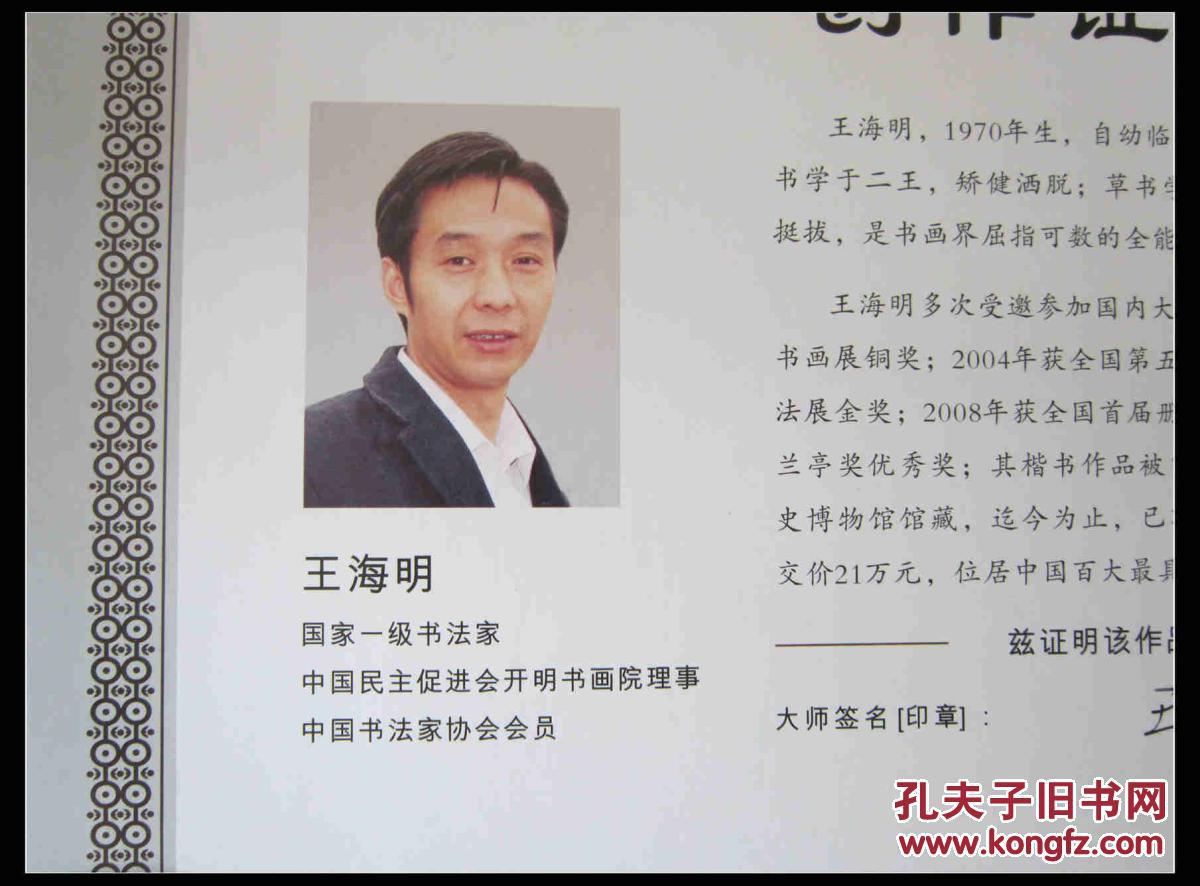 创作证
王海明，1970年生，自幼临
书学于二王，矫健洒脱；草书学
挺拔，是书画界屈指可数的全能
王海明多次受邀参加国内大
书画展铜奖；2004年获全国第五
法展金奖；2008年获全国首届册
兰亭奖优秀奖；其楷书作品被
史博物馆馆藏，迄今为止，已
交价21万元，位居中国百大最具
兹证明该作品
大师签名[印章]：
王海明
国家一级书法家
中国民主促进会开明书画院理事
中国书法家协会会员
孔夫子旧书网
www.kongfz.com